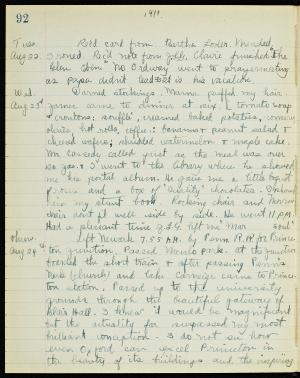 92
1911.
Tues. Red card from Bertha Loder. Mended.
Aug 22. Ironed. Rec'd note from Claire finished the
No Ordway went to prayermeeting
as papa didn't is his vacation.
Wed. Darned stockings. Mame puffed my hair.
Aug 23 James came to dinner at six. tomato soup
croutons: soufflé, creamed baked potatoes,
olives, hot rolls, coffee: banana & peanut salad &
cheese wafers; shredded watermelon & maple cake.
Mr. Cassedy called just as the meal was over
so Geo. & I went to the library where he showed
me his postal album. He gave me a little
and a box of "Quality" chocolates.
him my stunt book. Rocking chair and Morris
chair don't go well side by side. He went 11 P.M.
Had a pleasant time
Thurs. Left Newark 7.55 A.M. by Penn. R.R. for Prince-
Aug 24 ton junction. Passed Menlo Park. at the junction
boarded the short train after passing Penn's
Neck (church) and lake Carnegie came to Prince-
ton station. Passed up to the university
grounds through the beautiful gateway of
Blair Hall. I knew it would be magnificent
but the actuality far surpassed my most
brilliant conception. I do not see how
even Oxford can excel Princeton in
the beauty of its buildings and the inspiring